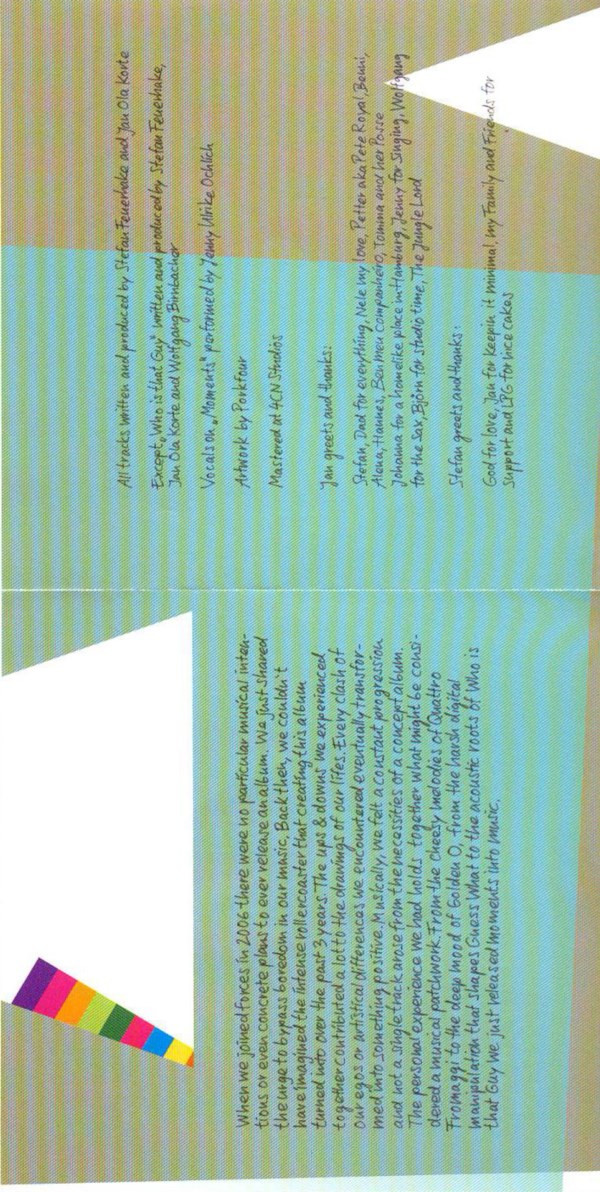 When we joined forces in 2006 there were no particular musical inten-
tions or even concrete plans to ever release an album. We just shared
the urge to bypass boredom in our music. Back then, we couldn't
have imagined the intense rollercoaster that creating this album
turned into over the past 3 years. The ups & downs we experienced
together contributed a lot to the drawings of our lifes. Every clash of
our egos or artistical differences we encountered eventually transfor-
med into something positive. Musically, we felt a constant progression
and not a single track arose from the necessities of a concept album.
The personal experience we had holds together what might be consi-
dered a musical patchwork. From the cheesy melodies of Quattro
Fromaggi to the deep mood of Golden O, from the harsh digital
manipulation that shapes Guess What to the acoustic roots of Who is
that Guy we just released moments into music.
All tracks written and produced by Stefan Feuerhake and Jan Ola Korte
Except „Who is that Guy" written and produced by Stefan Feuerhake,
Jan Ola Korte and Wolfgang Birnbacher
Vocals on „Moments" performed by Jenny Ulrike Ochlich
Artwork by Porkfour
Mastered at 4CN Studios
Jan greets and thanks:
Stefan, Dad for everything, Nele my love, Petter aka Pete Royal, Benni,
Alena, Hannes, Ben meu companheiro, Tomma and her Posse
Johanna for a homelike place in Hamburg, Jenny for Singing, Wolfgang
for the Sax, Björn for studio time, The Jungle Lord
Stefan greets and thanks:
God for love, Jan for keepin it minimal, my Family and Friends for
support and LPG for nice cakes